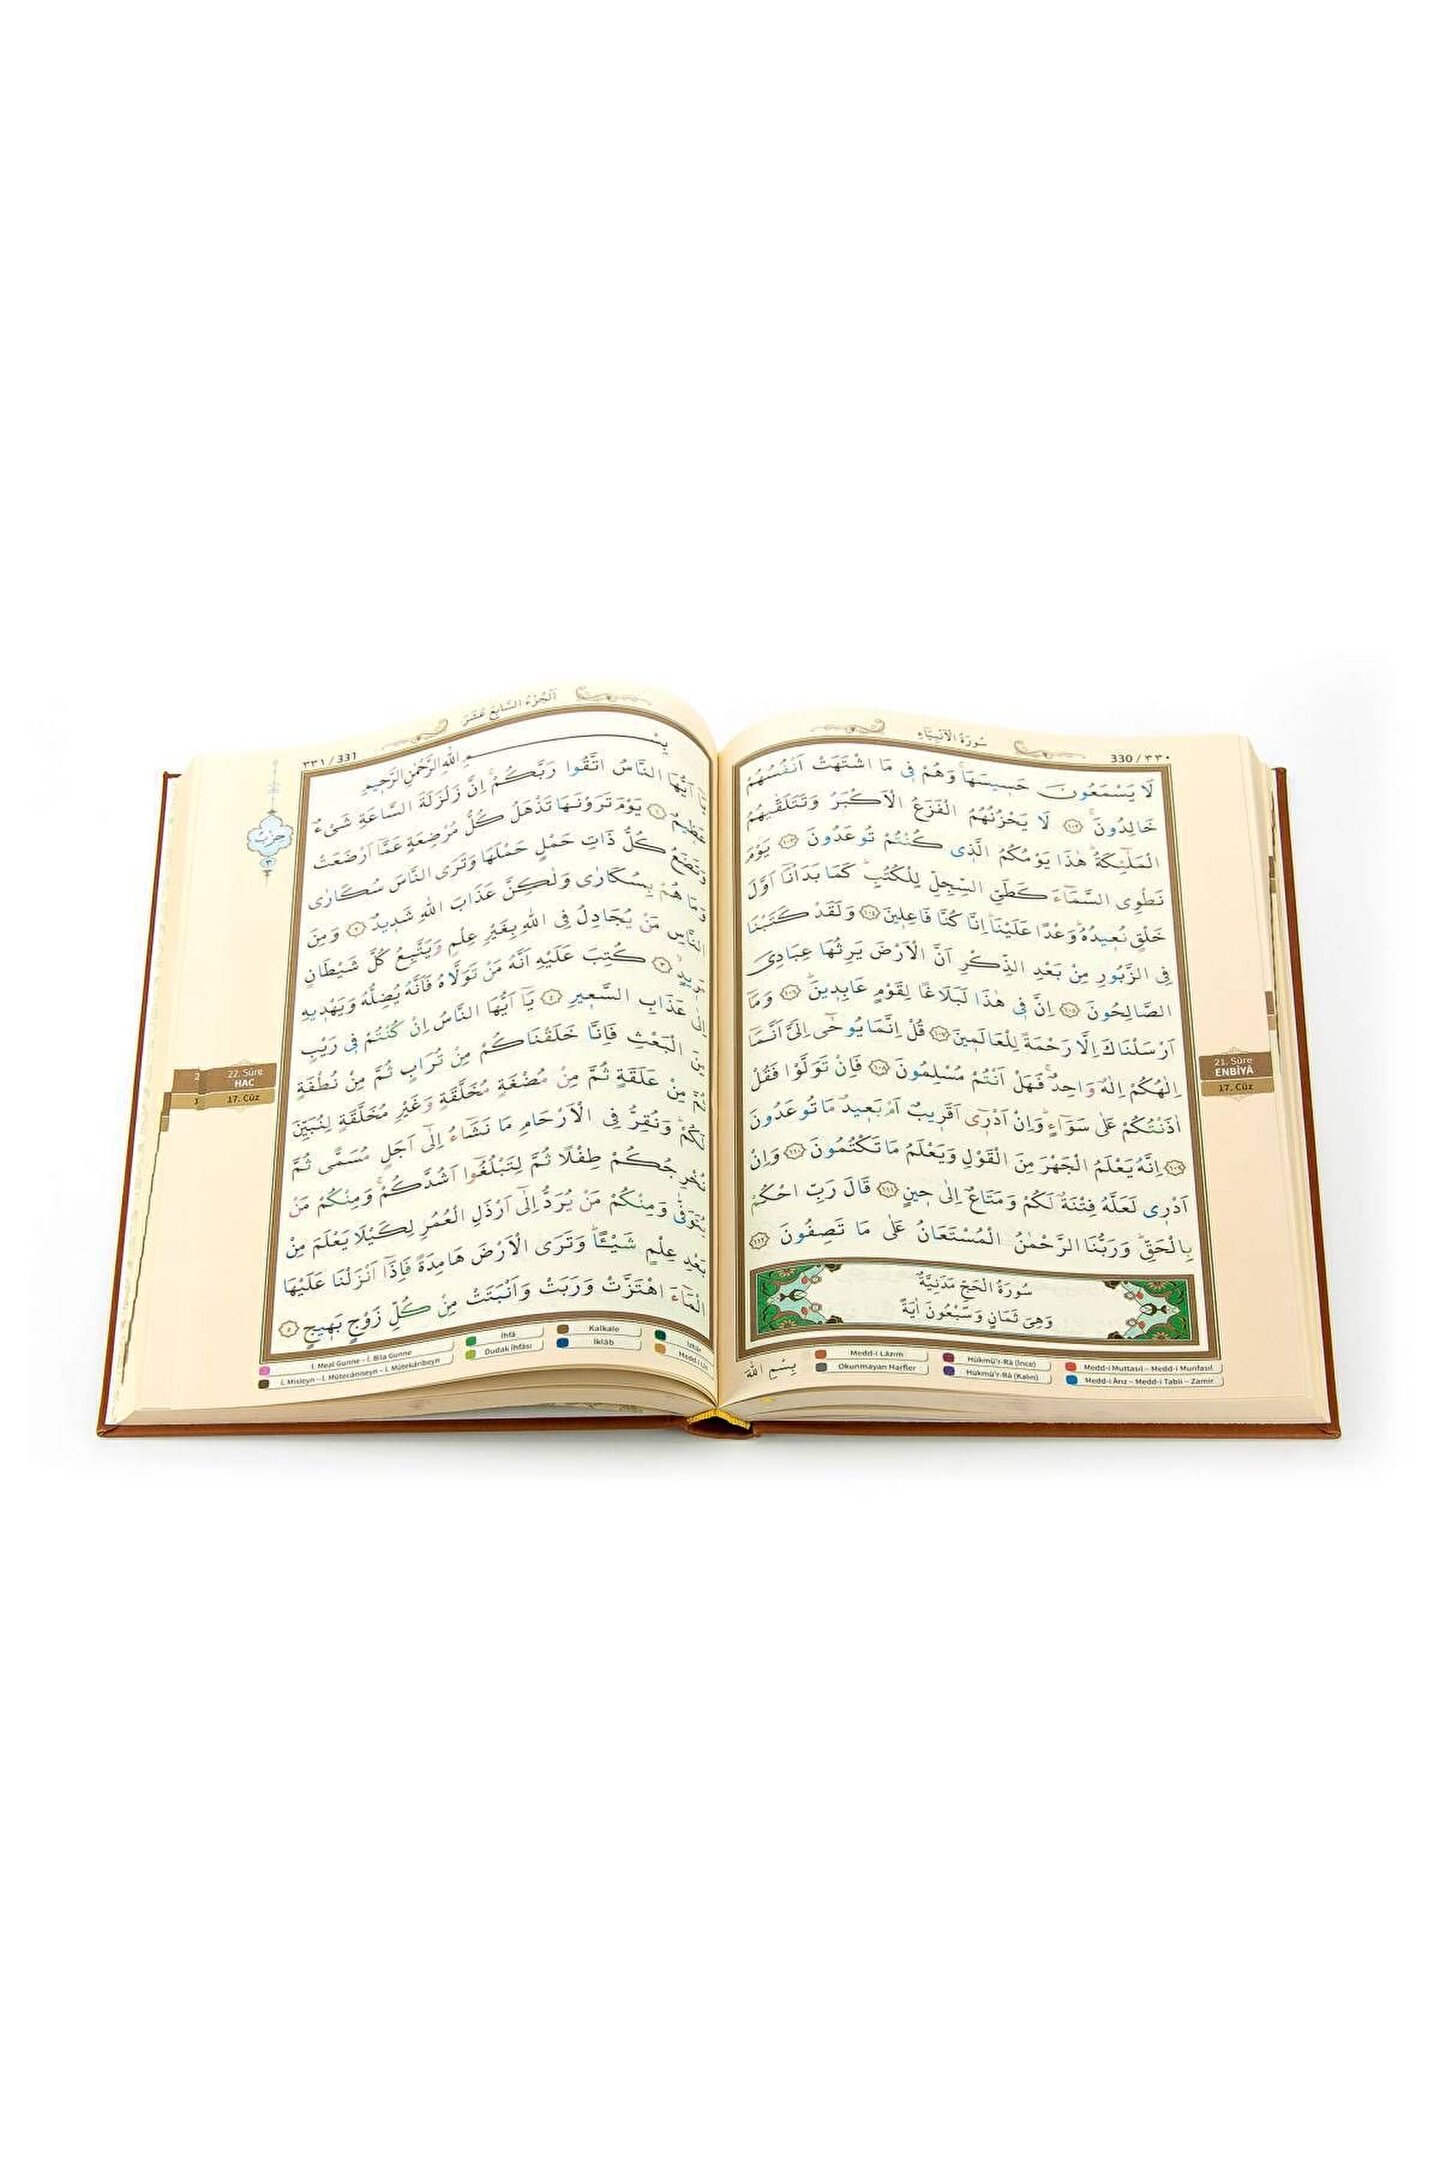 سُورَةُ الْاَنْبِيَاءِ
330 / ٣٣٠
لَا يَسْمَعُونَ حَسٖيسَهَاۚ وَهُمْ فٖي مَا اشْتَهَتْ اَنْفُسُهُمْ
خَالِدُونَۚ ﴿١٠٢﴾ لَا يَحْزُنُهُمُ الْفَزَعُ الْاَكْبَرُ وَتَتَلَقّٰيهُمُ
الْمَلٰٓئِكَةُۜ هٰذَا يَوْمُكُمُ الَّذٖي كُنْتُمْ تُوعَدُونَ ﴿١٠٣﴾ يَوْمَ
نَطْوِي السَّمَٓاءَ كَطَيِّ السِّجِلِّ لِلْكُتُبِۜ كَمَا بَدَأْنَٓا اَوَّلَ
خَلْقٍ نُعٖيدُهُۜ وَعْدًا عَلَيْنَاۜ اِنَّا كُنَّا فَاعِلٖينَ ﴿١٠٤﴾ وَلَقَدْ كَتَبْنَا
فِي الزَّبُورِ مِنْ بَعْدِ الذِّكْرِ اَنَّ الْاَرْضَ يَرِثُهَا عِبَادِيَ
الصَّالِحُونَ ﴿١٠٥﴾ اِنَّ فٖي هٰذَا لَبَلَاغًا لِقَوْمٍ عَابِدٖينَۜ ﴿١٠٦﴾ وَمَٓا
اَرْسَلْنَاكَ اِلَّا رَحْمَةً لِلْعَالَمٖينَ ﴿١٠٧﴾ قُلْ اِنَّمَا يُوحٰٓى اِلَيَّ اَنَّمَٓا
اِلٰهُكُمْ اِلٰهٌ وَاحِدٌۚ فَهَلْ اَنْتُمْ مُسْلِمُونَ ﴿١٠٨﴾ فَاِنْ تَوَلَّوْا فَقُلْ
اٰذَنْتُكُمْ عَلٰى سَوَٓاءٍۜ وَاِنْ اَدْرٖٓي اَقَرٖيبٌ اَمْ بَعٖيدٌ مَا تُوعَدُونَ
﴿١٠٩﴾ اِنَّهُ يَعْلَمُ الْجَهْرَ مِنَ الْقَوْلِ وَيَعْلَمُ مَا تَكْتُمُونَ ﴿١١٠﴾ وَاِنْ
اَدْرٖي لَعَلَّهُ فِتْنَةٌ لَكُمْ وَمَتَاعٌ اِلٰى حٖينٍ ﴿١١١﴾ قَالَ رَبِّ احْكُمْ
بِالْحَقِّۜ وَرَبُّنَا الرَّحْمٰنُ الْمُسْتَعَانُ عَلٰى مَا تَصِفُونَ ﴿١١٢﴾
سُورَةُ الْحَجِّ مَدَنِيَّةٌ
وَهِيَ ثَمَانٍ وَسَبْعُونَ اٰيَةً
بِسْمِ اللّٰهِ
21. Sûre
ENBİYÂ
17. Cüz
Medd-i Lâzım
Okunmayan Harfler
Hükmü'r-Râ (İnce)
Hükmü'r-Râ (Kalın)
Medd-i Muttasıl – Medd-i Munfasıl
Medd-i Ârız – Medd-i Tabii – Zamir
اَلْجُزْءُ السَّابِعَ عَشَرَ
٣٣١ / 331
بِسْمِ اللّٰهِ الرَّحْمٰنِ الرَّحٖيمِ
يَٓا اَيُّهَا النَّاسُ اتَّقُوا رَبَّكُمْۚ اِنَّ زَلْزَلَةَ السَّاعَةِ شَيْءٌ
عَظٖيمٌ ﴿١﴾ يَوْمَ تَرَوْنَهَا تَذْهَلُ كُلُّ مُرْضِعَةٍ عَمَّٓا اَرْضَعَتْ
وَتَضَعُ كُلُّ ذَاتِ حَمْلٍ حَمْلَهَا وَتَرَى النَّاسَ سُكَارٰى
وَمَا هُمْ بِسُكَارٰى وَلٰكِنَّ عَذَابَ اللّٰهِ شَدٖيدٌ ﴿٢﴾ وَمِنَ
النَّاسِ مَنْ يُجَادِلُ فِي اللّٰهِ بِغَيْرِ عِلْمٍ وَيَتَّبِعُ كُلَّ شَيْطَانٍ
﴿٣﴾ كُتِبَ عَلَيْهِ اَنَّهُ مَنْ تَوَلَّاهُ فَاَنَّهُ يُضِلُّهُ وَيَهْدٖيهِ
اِلٰى عَذَابِ السَّعٖيرِ ﴿٤﴾ يَٓا اَيُّهَا النَّاسُ اِنْ كُنْتُمْ فٖي رَيْبٍ
مِنَ الْبَعْثِ فَاِنَّا خَلَقْنَاكُمْ مِنْ تُرَابٍ ثُمَّ مِنْ نُطْفَةٍ
ثُمَّ مِنْ عَلَقَةٍ ثُمَّ مِنْ مُضْغَةٍ مُخَلَّقَةٍ وَغَيْرِ مُخَلَّقَةٍ لِنُبَيِّنَ
لَكُمْۜ وَنُقِرُّ فِي الْاَرْحَامِ مَا نَشَٓاءُ اِلٰٓى اَجَلٍ مُسَمًّى ثُمَّ
نُخْرِجُكُمْ طِفْلًا ثُمَّ لِتَبْلُغُٓوا اَشُدَّكُمْۚ وَمِنْكُمْ مَنْ
يُتَوَفّٰى وَمِنْكُمْ مَنْ يُرَدُّ اِلٰٓى اَرْذَلِ الْعُمُرِ لِكَيْلَا يَعْلَمَ مِنْ
بَعْدِ عِلْمٍ شَيْـًٔاۜ وَتَرَى الْاَرْضَ هَامِدَةً فَاِذَٓا اَنْزَلْنَا عَلَيْهَا
الْمَٓاءَ اهْتَزَّتْ وَرَبَتْ وَاَنْبَتَتْ مِنْ كُلِّ زَوْجٍ بَهٖيجٍ ﴿٥﴾
حزب
٣
22. Sûre
HAC
17. Cüz
İ. Meal Gunne – İ. Bila Gunne
İ. Misleyn – İ. Mütecâniseyn – İ. Mütekâribeyn
İhfâ
Dudak İhfâsı
Kalkale
İklâb